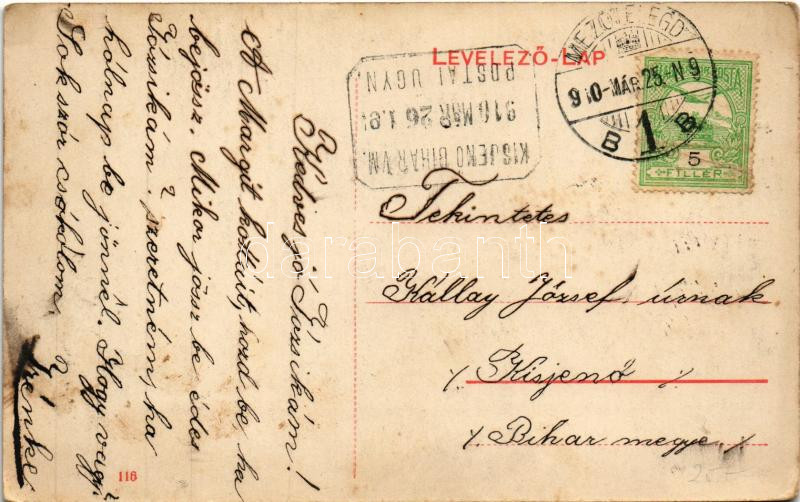 LEVELEZŐ-LAP
MEZŐTELEGD
910-MÁR.25.-N 9
B 1 B
KISJENŐ BIHAR VM.
910 MÁR 26
POSTAI ÜGYN.
5
FILLÉR
Tekintetes
Kállay József úrnak
./. Kisjenő ./.
./. Bihar megye ./.
Kedves jó Józsikám!
A Margit hozd be, ha
bejösz. Mikor jösz be édes
Józsikám? szeretném, ha
hólnap be jönnél. Hogy vagy?
Sokszor csókolom
116
darabanth